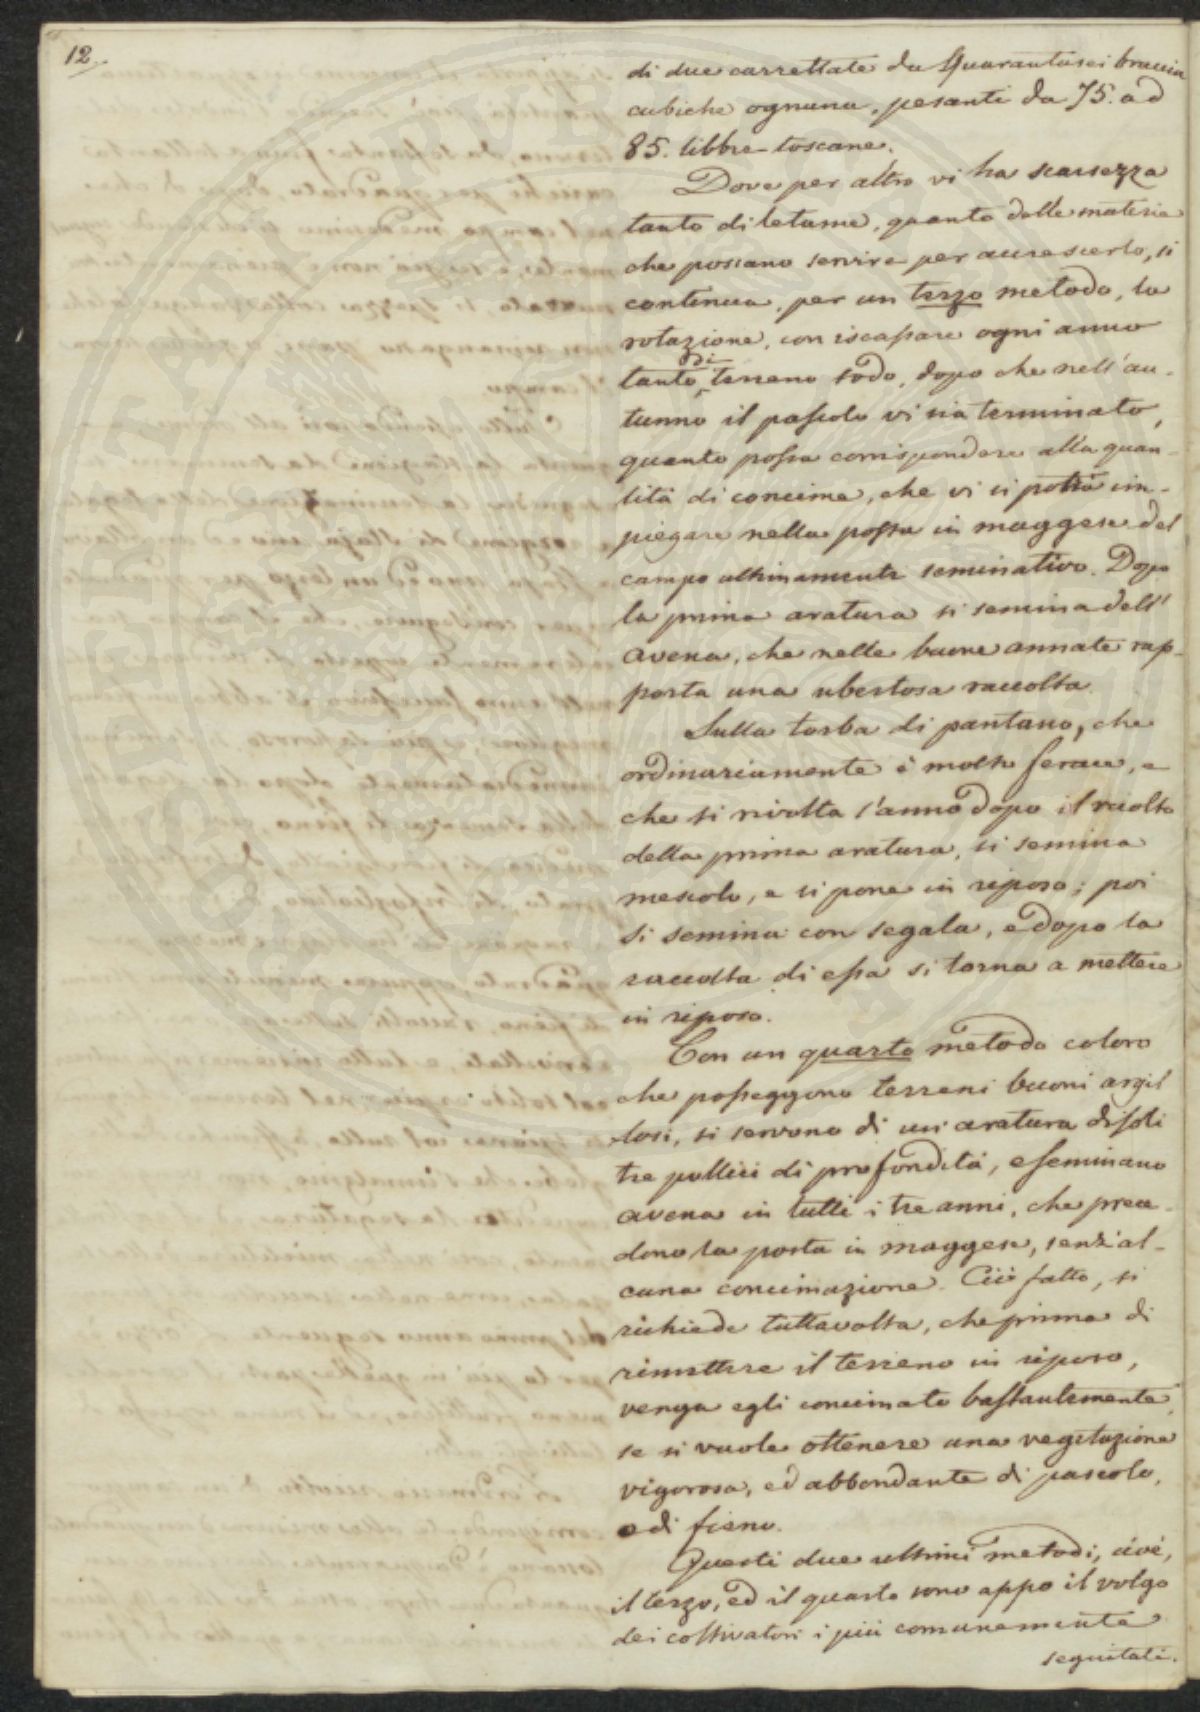 12.
di due carrettate da Quarantasei braccia
cubiche ognuna, pesanti da 75. ad
85. libbre toscane.
Dove per altro vi ha scarsezza
tanto di letame, quanto delle materie
che possano servire per accrescerlo, si
continua, per un terzo metodo, la
rotazione, con iscassare ogni anno
tanto di terreno sodo, dopo che nell'au-
tunno il pascolo vi sia terminato,
quanto possa corrispondere alla quan-
tità di concime, che vi si potrà im-
piegare nella possa in maggese del
campo ultimamente seminativo. Dopo
la prima aratura si semina dell'
avena, che nelle buone annate rap-
porta una ubertosa raccolta.
Sulla torba di pantano, che
ordinariamente è molto ferace, e
che si rivolta l'anno dopo il raccolto
della prima aratura, si semina
mescolo, e si pone in riposo; poi
si semina con segala, e dopo la
raccolta di essa si torna a mettere
in riposo.
Con un quarto metodo coloro
che posseggono terreni buoni argil
losi, si servono di un'aratura di soli
tre pollici di profondità, e seminano
avena in tutti i tre anni, che prece-
dono la posta in maggese, senz'al-
cuna concimazione. Ciò fatto, si
richiede tuttavolta, che prima di
rimettere il terreno in riposo,
venga egli concimato bastantemente,
se si vuole ottenere una vegetazione
vigorosa, ed abbondante di pascolo,
e di fieno.
Questi due ultimi metodi, cioè,
il terzo, ed il quarto sono appo il volgo
dei coltivatori i più comunemente
seguitati.